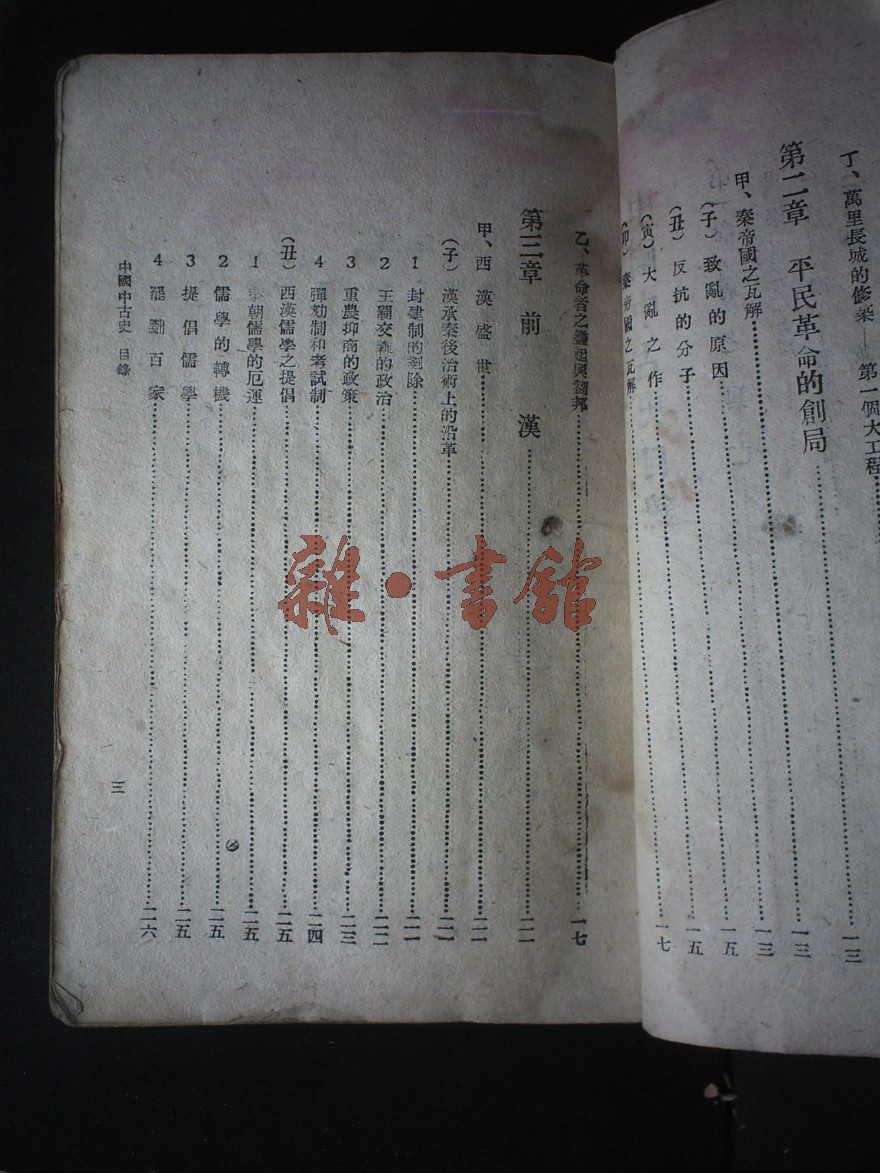 丁、萬里長城的修築——第一個大工程……一三
第二章　平民革命的創局……一三
甲、秦帝國之瓦解……一三
(子)致亂的原因……一五
(丑)反抗的分子……一五
(寅)大亂之作……一七
(卯)秦帝國之瓦解
乙、革命者之蠭起與劉邦……一七
第三章　前　漢……二一
甲、西漢盛世……二一
(子)漢承秦後治術上的沿革……二一
1 封建制的剗除……二一
2 王霸交雜的政治……二二
3 重農抑商的政策……二三
4 彈劾制和考試制……二四
(丑)西漢儒學之提倡……二五
1 秦朝儒學的厄運……二五
2 儒學的轉機……二五
3 提倡儒學……二五
4 罷黜百家……二六
中國中古史　目錄
三
雜·書館